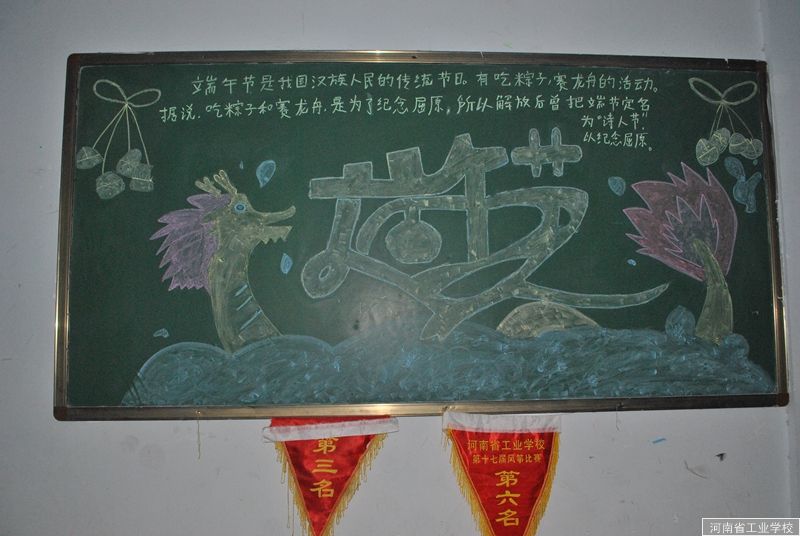 端午节是我国汉族人民的传统节日。有吃粽子,赛龙舟的活动。
据说,吃粽子和赛龙舟,是为了纪念屈原,所以解放后曾把端节定名
为"诗人节",
以纪念屈原。
第三名
河南省工业学校
第十七届风筝比赛
第六名
河南省工业学校